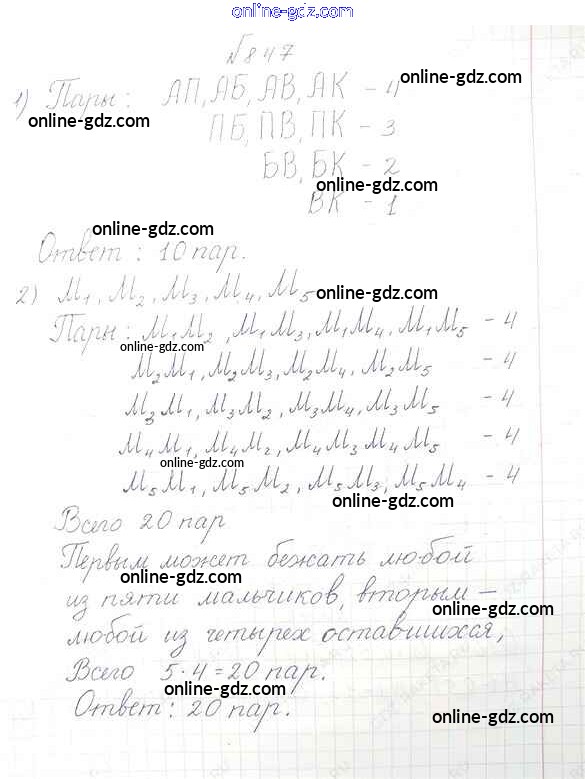 online-gdz.com
№847
1) Пары: АП, АБ, АВ, АК - 4
online-gdz.com
online-gdz.com
ПБ, ПВ, ПК - 3
БВ, БК - 2
online-gdz.com
ВК - 1
online-gdz.com
Ответ: 10 пар.
2) М1, М2, М3, М4, М5
online-gdz.com
Пары: М1М2, М1М3, М1М4, М1М5 - 4
online-gdz.com
М2М1, М2М3, М2М4, М2М5 - 4
М3М1, М3М2, М3М4, М3М5 - 4
М4М1, М4М2, М4М3 М4М5 - 4
online-gdz.com
М5М1, М5М2, М5М3, М5М4 - 4
online-gdz.com
Всего 20 пар
Первым может бежать любой
online-gdz.com
из пяти мальчиков, вторым –
online-gdz.com
любой из четырех оставшихся,
Всего 5·4=20 пар.
online-gdz.com
Ответ: 20 пар.
online-gdz.com